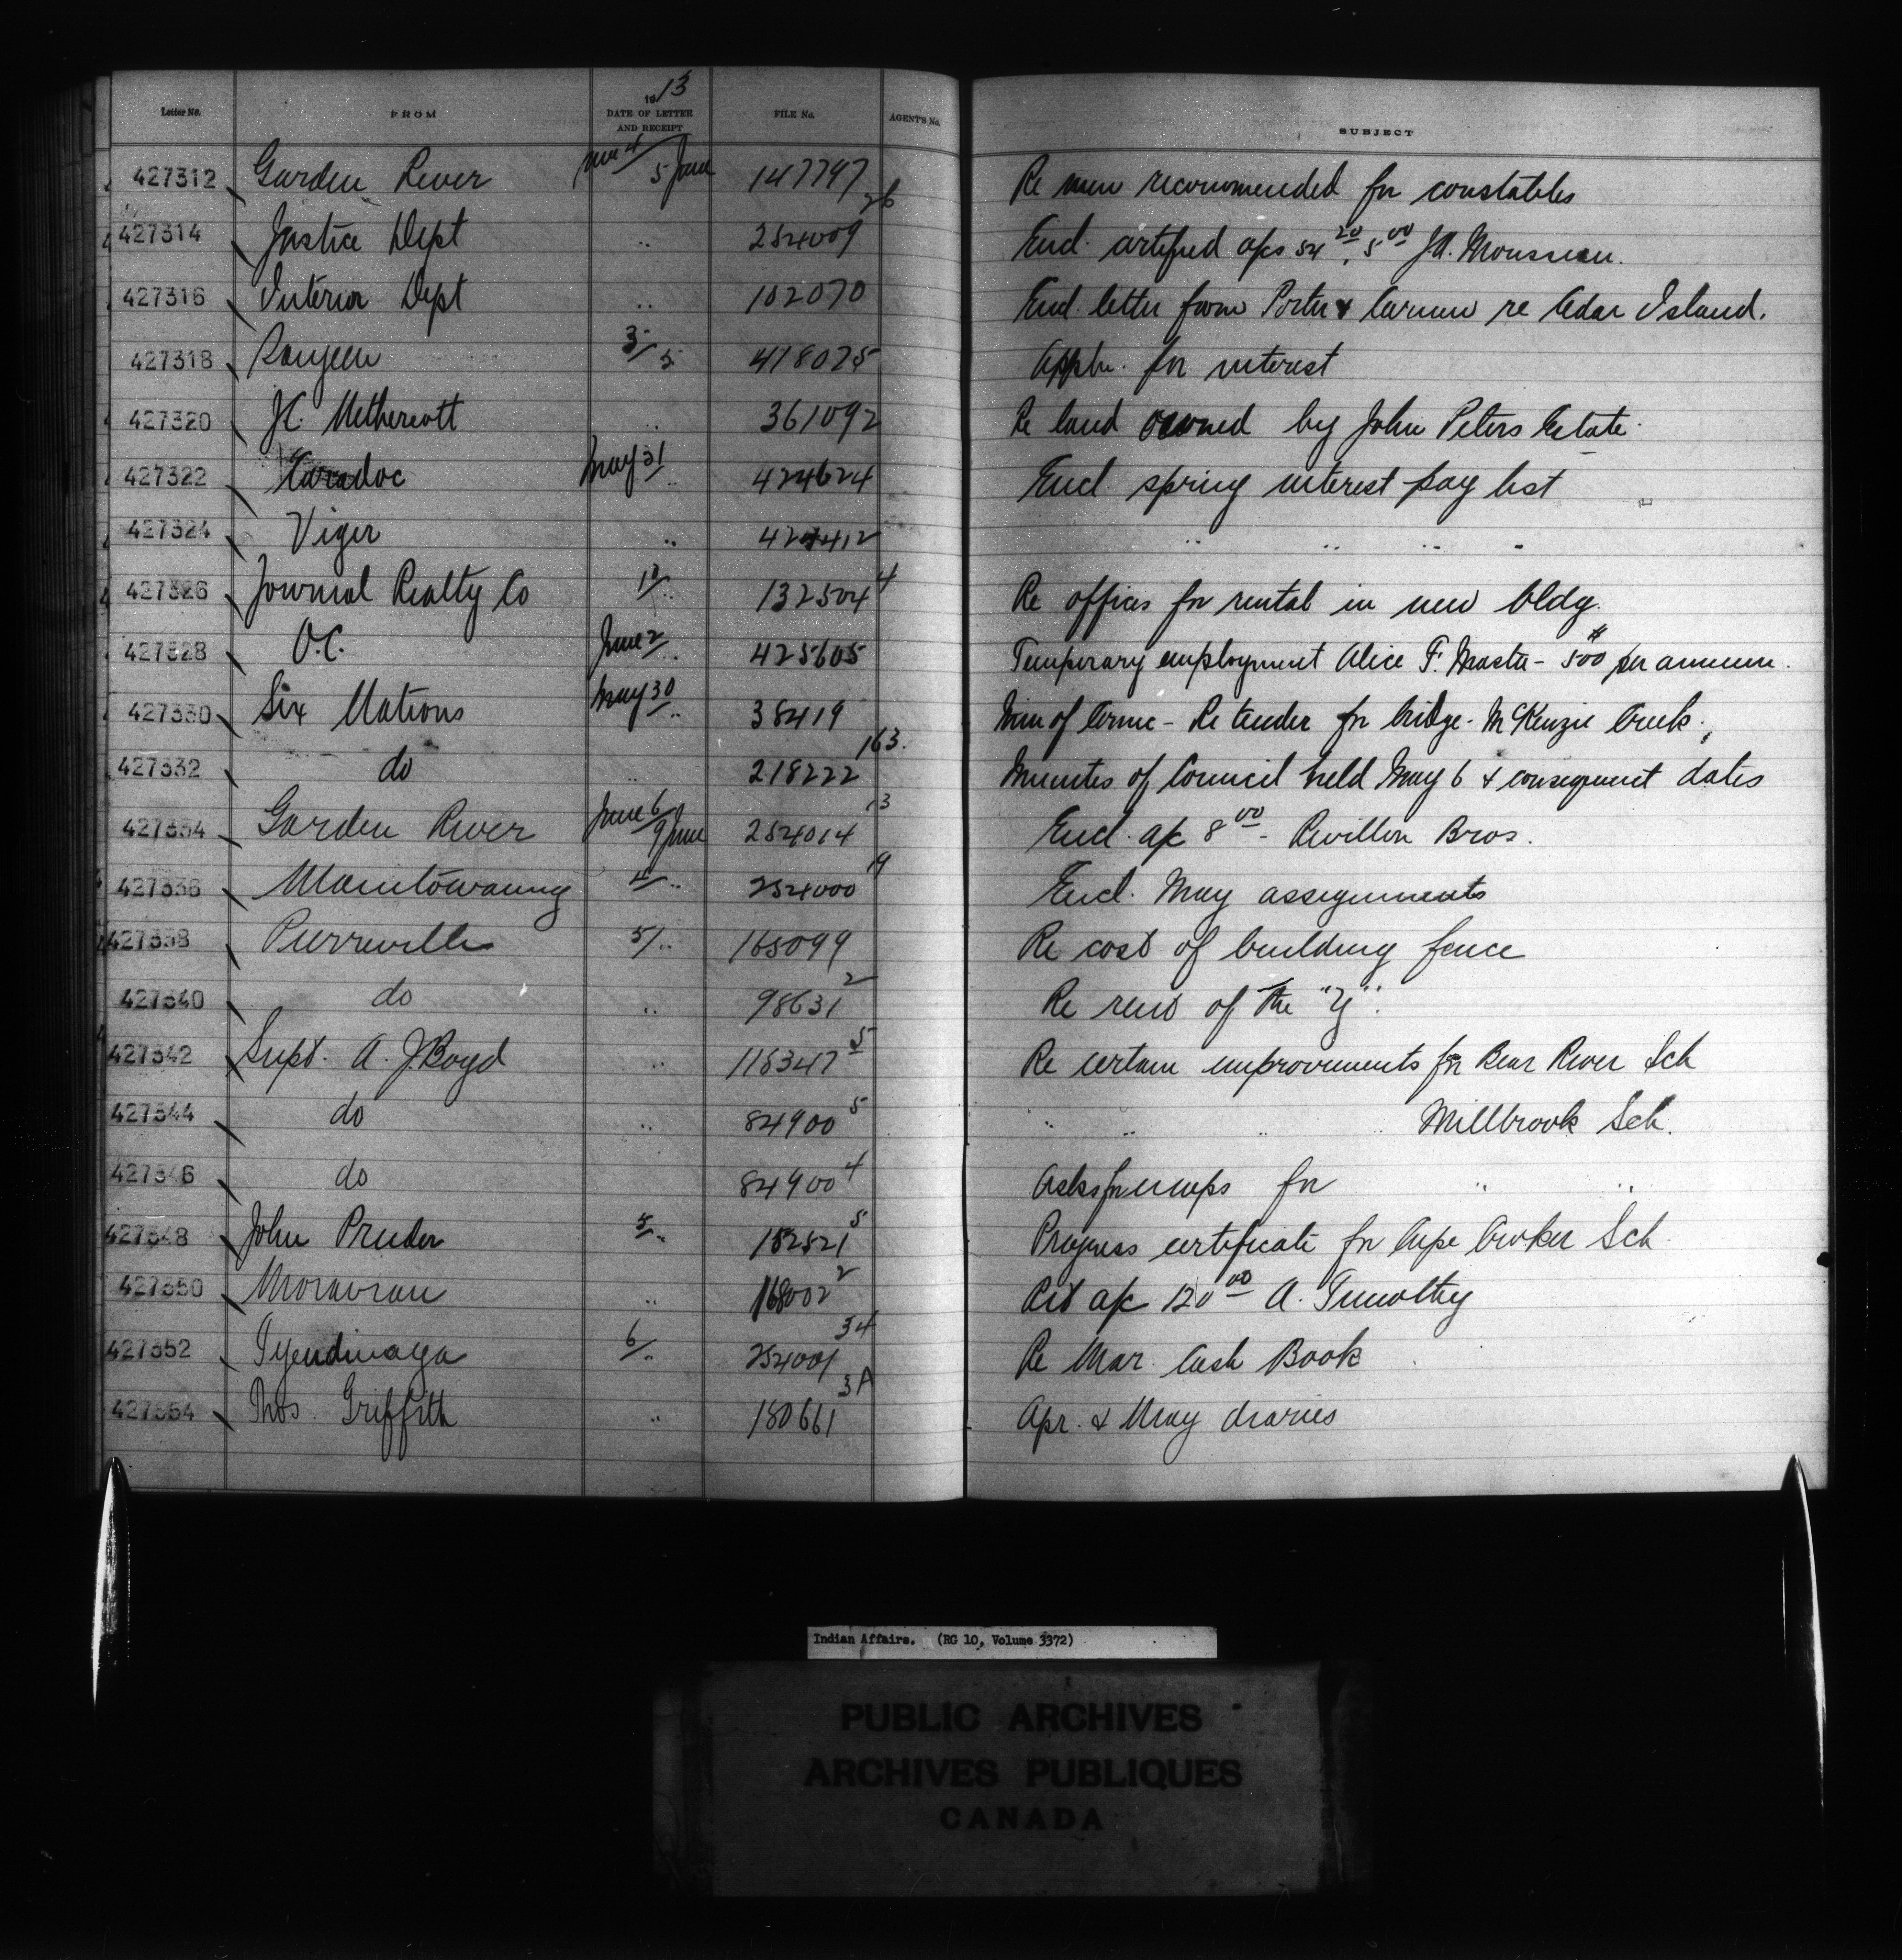 1913
Letter No. FROM DATE OF LETTER AND RECEIPT FILE No. AGENT'S No. SUBJECT
427312 Garden River June 4/ 5 June 147797 Re men recommended for constables
427314 Justice Dept .. 254009 26 Encl. certified a/cs 54 20, 5 00 J.A.
427316 Interior Dept .. 102070 Encl. letter from Porter & Carman re Cedar Island.
427318 Saugeen 3/ 5 418025 Appln. for interest
427320 J.C. Methercott .. 361092 Re land owned by John Peters Estate.
427322 Caradoc May 31/ .. 424624 Encl. spring interest pay list
427324 Viger .. 424412 .. .. .. ..
427326 Journal Realty Co 10/ .. 132504 4 Re offices for rental in new bldg.
427328 O.C. June 2/ .. 425605 Temporary employment Alice F. Master - $500 per annum.
427330 Six Nations May 30/ .. 38419 Min of - Re tender for bridge - McKenzie Creek.
427332 do .. 218222 163. Minutes of Council held May 6 & consequent dates
427334 Garden River June 6/ 9 June 254014 13 Encl. a/c 8 00 - Revillon Bros.
427336 Manitowaning 4/ .. 254000 19 Encl. May assignments
427338 Pierreville 5/ .. 165099 Re cost of building fence
427340 do .. 98631 2 Re rent of the "Y".
427342 Supt. A. J. Boyd .. 115347 5 Re certain improvements for Bear River Sch
427344 do .. 84900 5 .. .. .. .. Millbrook Sch.
427346 do 84900 4 Asks for maps for .. ..
427348 John Pruder 5/ .. 152521 5 Progress certificate for Cape Croker Sch.
427350 Moravian .. 168002 2 Retd a/c 120 00 A. Timothy
427352 Tyendinaga 6/ .. 254001 34 Re Mar. Cash Book
427354 Thos. Griffith .. 180661 3A Apr. & May diaries
Indian Affairs. (RG 10, Volume 3372)
PUBLIC ARCHIVES
ARCHIVES PUBLIQUES
CANADA